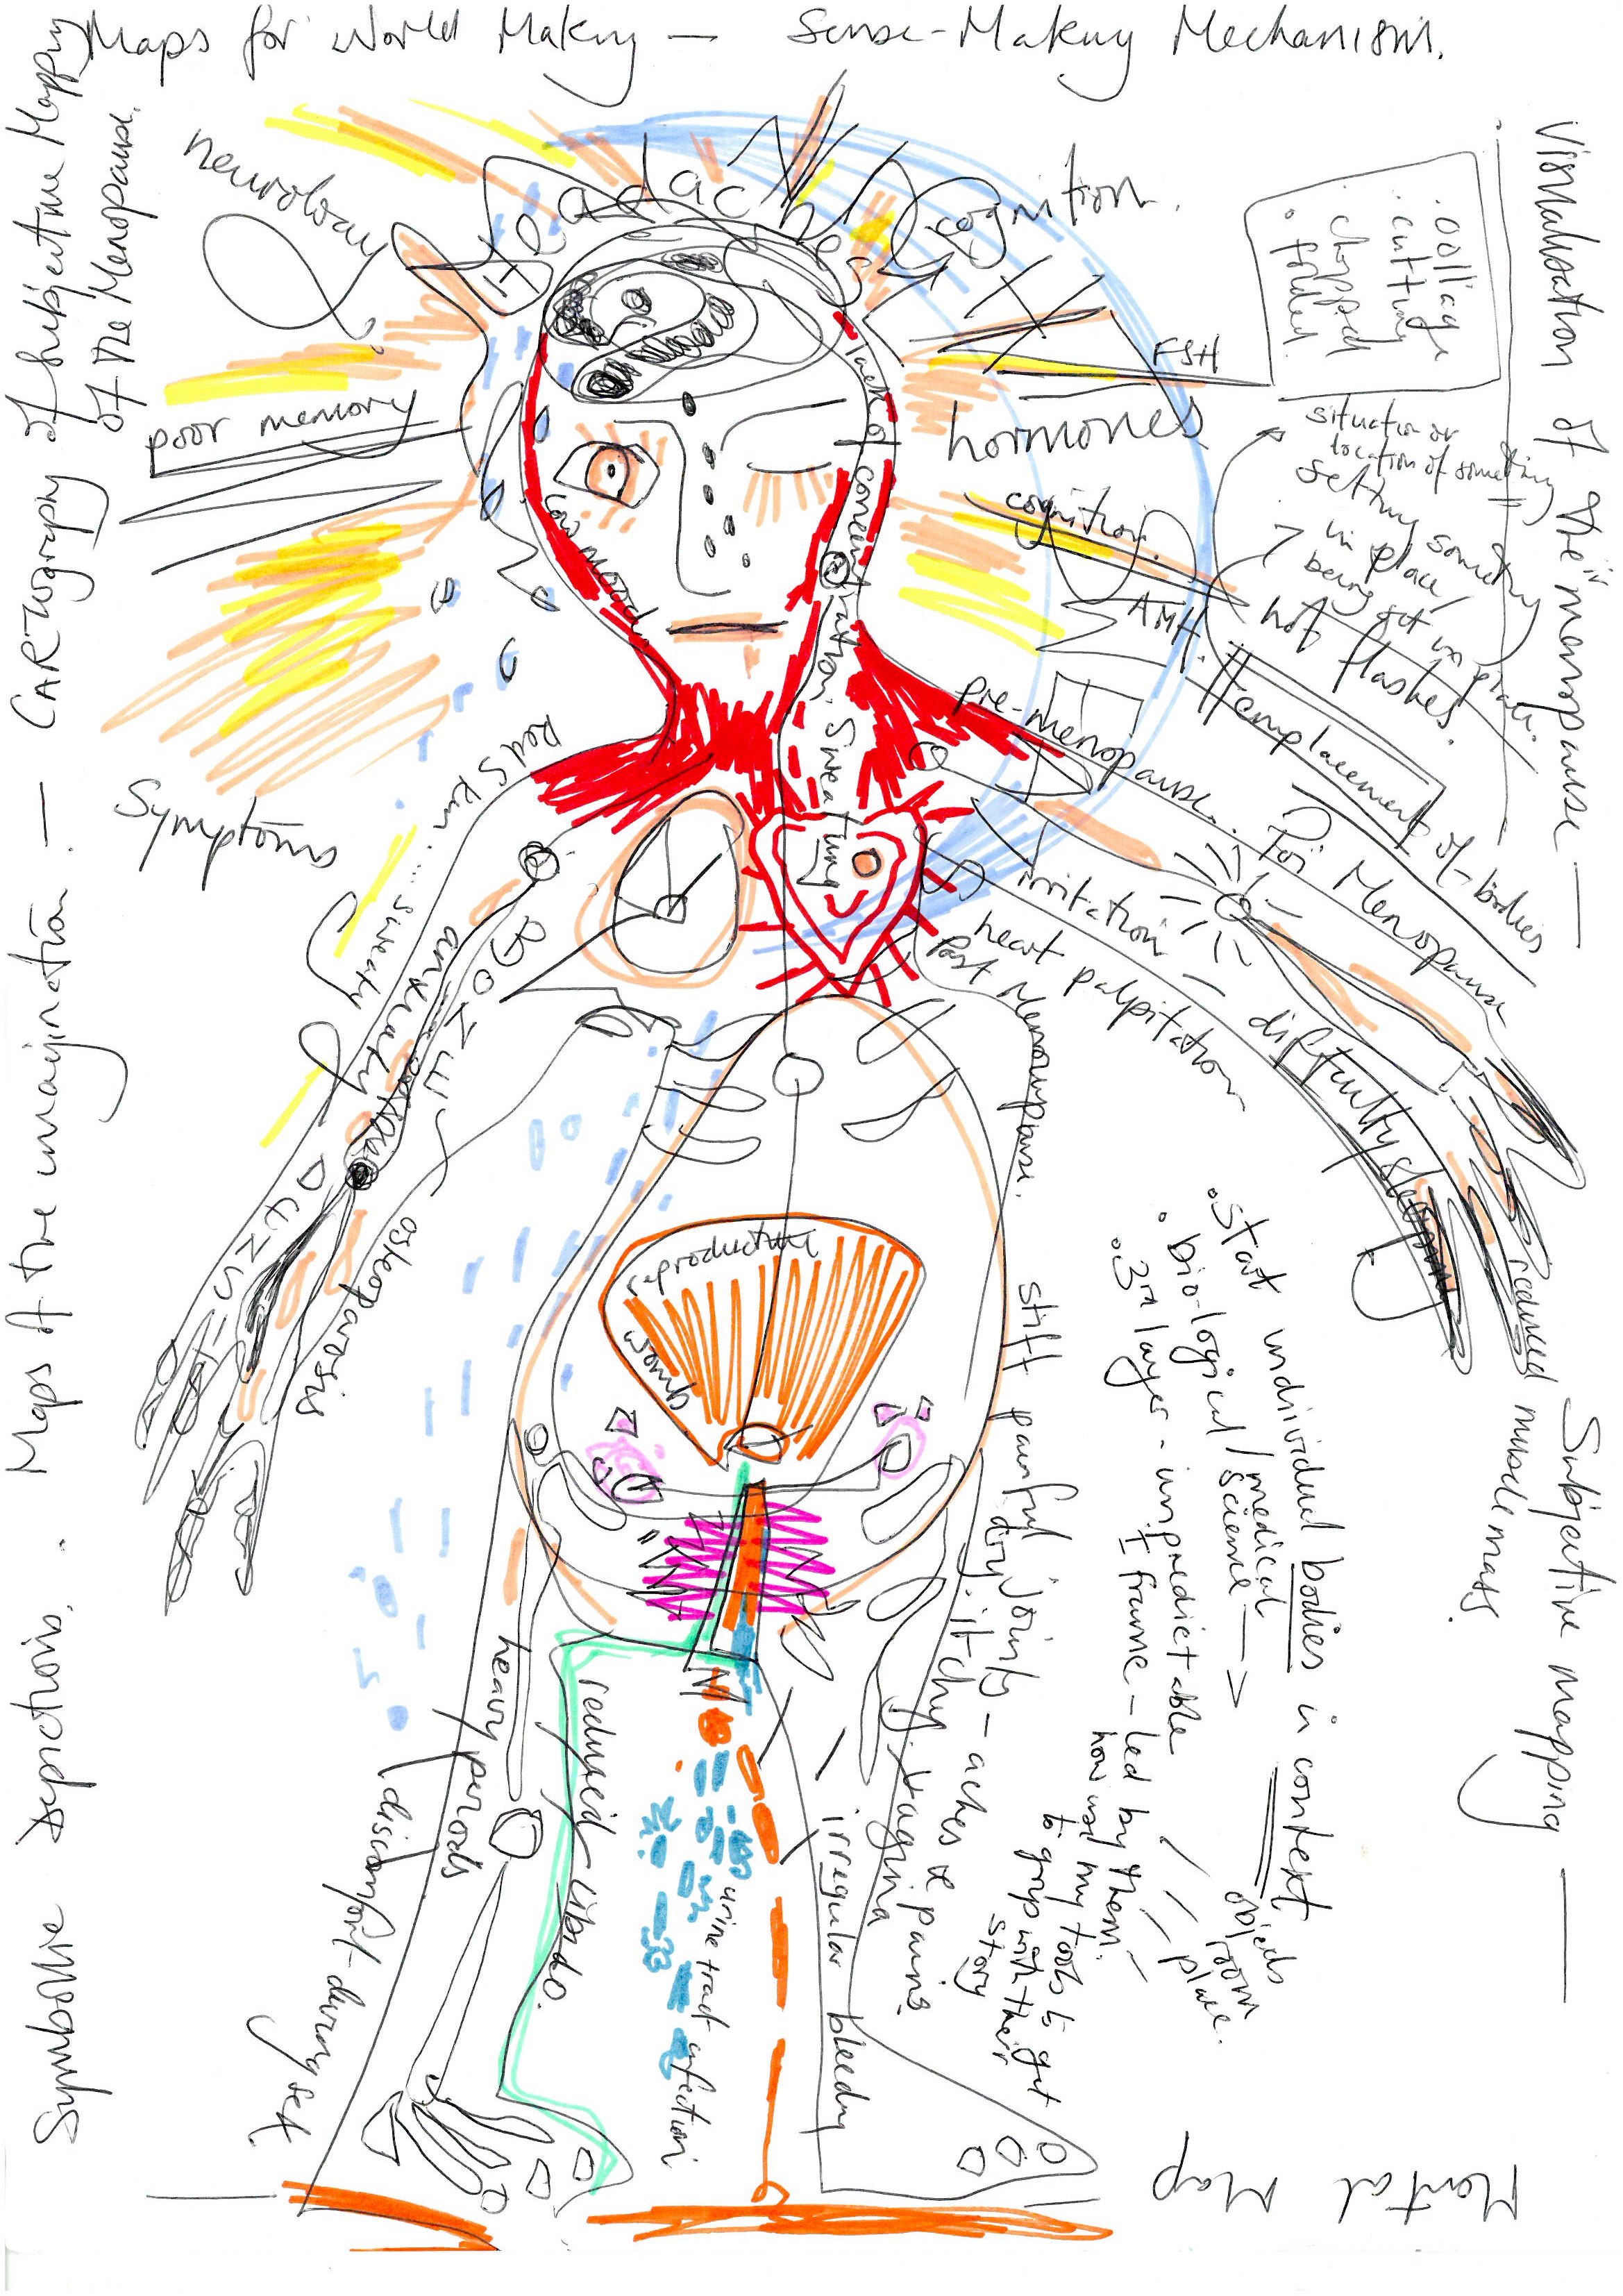 Maps for World Making — Sense-Making Mechanism.
Visualisation of the menopause —
Subjective mapping —
Mental Map
Symbolic Depictions. Maps of the imagination. — CARTography of subjective Mapping
of the Menopause.
neurology
Headaches
cognition.
. collage
. cutting
chopped
. folded.
FSH
poor memory
hormones
situation or
location of something
setting something
in place /
being set in place.
cognition.
AMH.
hot flashes.
emplacement of-bodies
lack of concentration. Sweating
low mood
Symptoms
Red Skin .... sweaty
anxiety
BONE
DENS
osteoporosis
Pre-menopause.
Peri Menopause
Post Menopause.
irritation — difficulty sleeping
heart palpitation
reduced muscle mass.
. Start individual bodies in context
. biological / medical
science →
. 3rd layer - unpredictable
I frame - led by them.
how use my tools to get
to grips with their
story
objects
room
place.
reproductive
womb
stiff painful joints — aches & pains.
dry. itchy. vagina
irregular bleeding
urine tract infection
reduced libido.
heavy periods
discomfort during sex.